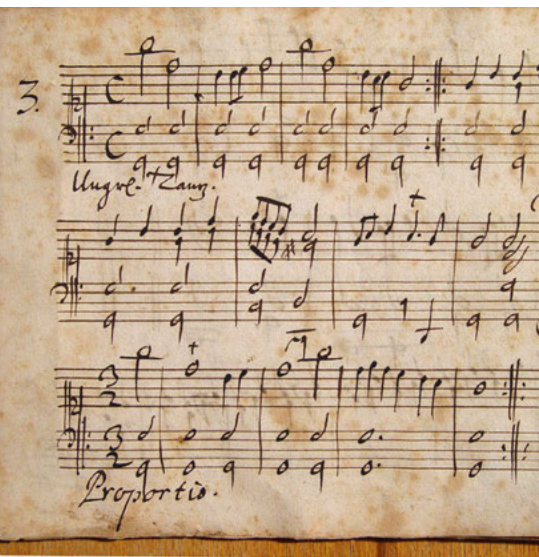 3.
Ungr. Tanz.
3
2
3
2
Proportio.